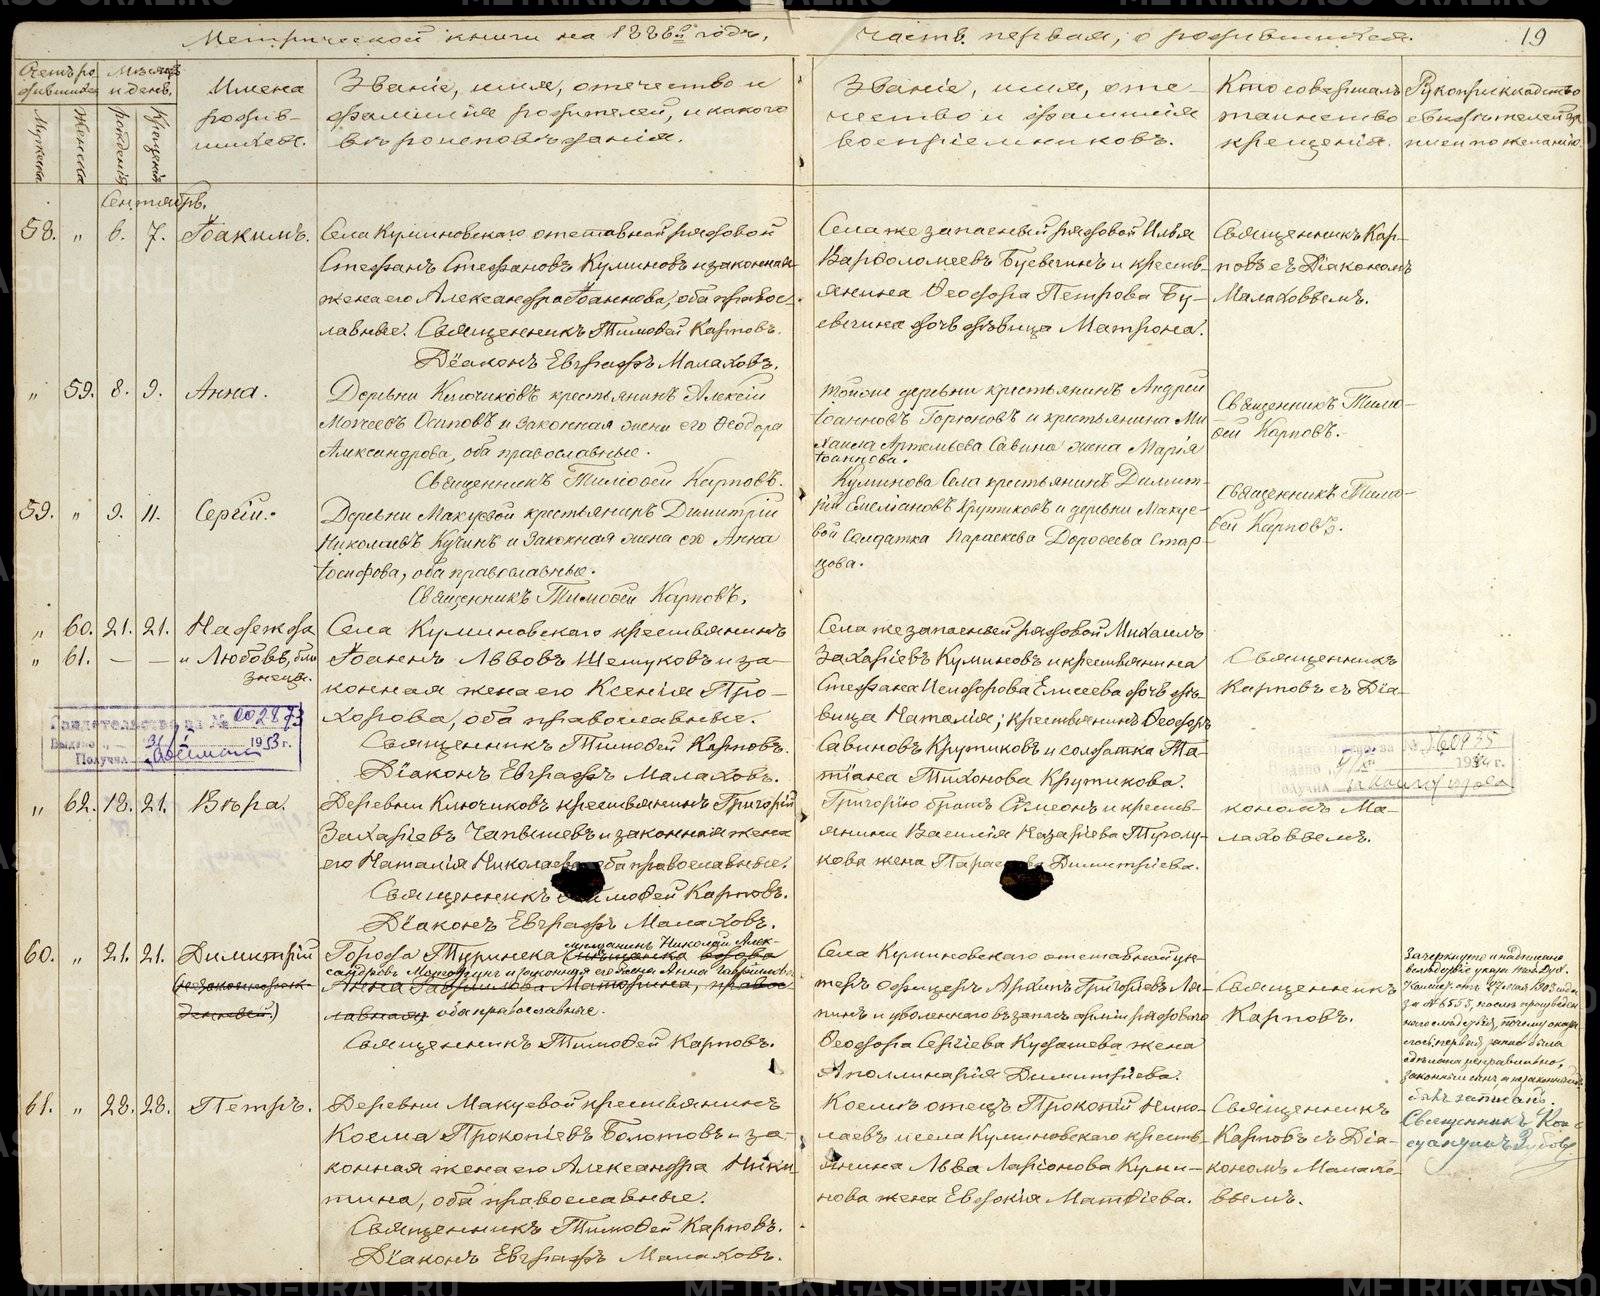 Метрической книги на 1886й годъ,
Часть первая, о родившихся.
19
Счетъ ро-
дившихся
Мужеска
Женска
Мѣсяцъ
и день.
рожденія
Крещенія
Имена
родив-
шихся.
Званіе, имя, отечество и
фамилія родителей, и какого
вѣроисповѣданія.
Званіе, имя, оте-
чество и фамилія
воспріемниковъ.
Кто совершалъ
таинство
крещенія.
Рукоприкладство
свидѣтелей за-
писи по желанію
Сентябрь.
58. „ 6. 7. Іоакимъ.
Села Куминовскаго отставной рядовой
Стефанъ Стефановъ Куминовъ и законная
жена его Александра Іоаннова, оба правос-
лавные. Священникъ Тимоѳей Карповъ.
Діаконъ Евграфъ Малаховъ.
Села же запасный рядовой Илья
Варѳоломеевъ Буевичинъ и кресть-
янина Ѳеодора Петрова Бу-
евичина дочь дѣвица Матрона.
Священникъ Кар-
повъ съ Діакономъ
Малаховымъ.
„ 59. 8. 9. Анна.
Деревни Ключиковъ крестьянинъ Алексій
Моѵсеевъ Осиповъ и законная жена его Ѳеодора
Александрова, оба православные.
Священникъ Тимоѳей Карповъ.
Тойже деревни крестьянинъ Андрей
Іоанновъ Горюновъ и крестьянина Ми-
хаила Артемьева Савина жена Марія
Іоаннова.
Священникъ Тимо-
ѳей Карповъ.
59. „ 9. 11. Сергій.
Деревни Макуевой крестьянинъ Димитрій
Николаевъ Кучинъ и законная жена его Анна
Іосифова, оба православные.
Священникъ Тимоѳей Карповъ.
Куминова Села крестьянинъ Димит-
рій Емеліановъ Крутиковъ и деревни Макуе-
вой Солдатка Параскева Дороѳеева Стар-
цова.
Священникъ Тимо-
ѳей Карповъ.
„ 60. 21. 21. Надежда
„ 61. — — и Любовь, бли-
знецы.
Села Куминовскаго крестьянинъ
Іоаннъ Львовъ Шешуковъ и за-
конная жена его Ксенія Про-
хорова, оба православные.
Священникъ Тимоѳей Карповъ.
Діаконъ Евграфъ Малаховъ.
Села же запасный рядовой Михаилъ
Захаріевъ Куминовъ и крестьянина
Стефана Исидорова Елисеева дочь дѣ-
вица Наталія; крестьянинъ Ѳеодоръ
Савиновъ Крутиковъ и солдатка Та-
тіана Тихонова Крутикова.
Священникъ
Карповъ съ Діа-
Свидетельство на № 002873
Выдано
1953 г.
Получил
№ 560935
Получил
„ 62. 18. 21. Вѣра.
Деревни Ключиковъ крестьянинъ Григорій
Захаріевъ Чапышевъ и законная жена
его Наталія Николаева, оба православные.
Священникъ Тимоѳей Карповъ.
Діаконъ Евграфъ Малаховъ.
Григорію братъ Сѵмеонъ и кресть-
янина Василія Назаріева Тролу-
кова жена Параскева Димитріева.
кономъ Ма-
лаховымъ.
60. „ 21. 21. Димитрій
(незаконнорож-
денный.)
Города Туринска мѣщанинъ Николай Алек-
(мѣщанка вдова
сандровъ Маторинъ и законная его жена Анна Гавриилова
Анна Гавриилова Маторина, право-
славная) оба православные.
Священникъ Тимоѳей Карповъ.
Села Куминовскаго отставной ун-
теръ офицеръ Архипъ Григорьевъ Ла-
пинъ и уволеннаго въ запасъ арміи рядоваго
Ѳеодора Сергіева Кудашева жена
Аполлинарія Димитріева.
Священникъ
Карповъ.
Зачеркнуто и надписано
вслѣдствіе указа Тоб. Дух.
Консист. отъ 27 мая 1903 года
за № 6555, послѣ произведен-
наго слѣдствія, почему оказа-
лось первая запись была
сдѣлана неправильно,
законный сынъ незаконнымъ
былъ записанъ.
Священникъ Кон-
стантинъ Зубовъ
61. „ 28. 28. Петръ.
Деревни Макуевой крестьянинъ
Косма Прокопіевъ Болотовъ и за-
конная жена его Александра Ники-
тина, оба православные.
Священникъ Тимоѳей Карповъ.
Діаконъ Евграфъ Малаховъ.
Космы отецъ Прокопій Нико-
лаевъ и села Куминовскаго кресть-
янина Льва Ларіонова Куми-
нова жена Евдокія Матѳіева.
Священникъ
Карповъ съ Діа-
кономъ Малахо-
вымъ.
METRIKI.GASO-URAL.RU